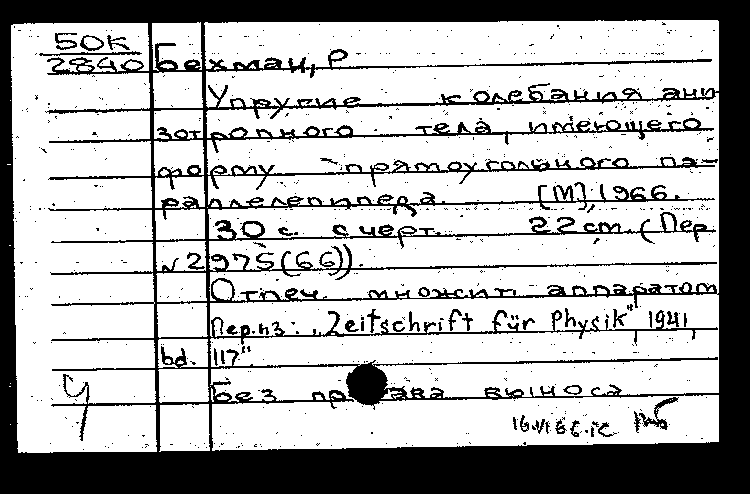 50к
2840 Бехман, Р
Упругие колебания ани-
зотропного тела, имеющего
форму прямоугольного па-
раллелепипеда. [М], 1966.
30 с. с черт. 22 cm. (Пер.
№2975(66)).
Отпеч. множит. аппаратом
Пер. из: „Zeitschrift für Physik", 1941,
bd. 117".
Без права выноса
Ч
16.VI 66.